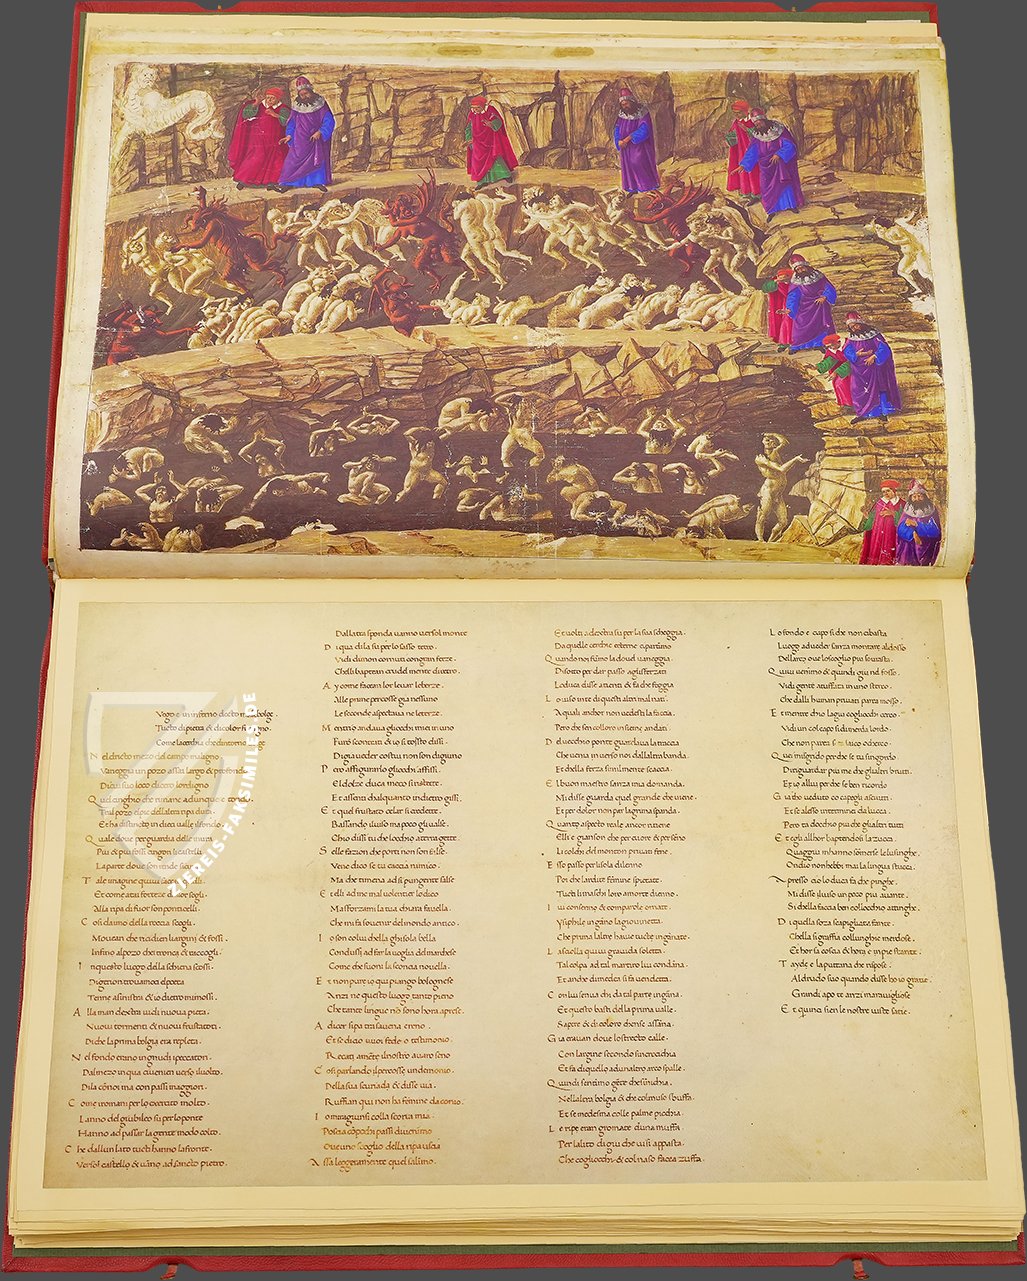 Luogo e in inferno decto malebolge.
Tucto di pietra & di color ferrigno
Come lacerchia che dintorno
N el dricto mezo del campo maligno
Vaneggia un pozo assai largo & profondo
Di cui suo loco dicero lordigno
Q uel cinghio che rimane adunque e tondo
Tral pozo el pie dellalta ripa dura
Et ha distincto in dieci valle
Q uale doue per guardia delle mura
Piu & piu fossi cingon li castelli
La parte doue son rende
T ale imagine quiui
Et come a tai forteze da lor sogli
Alla ripa di fuor son ponticelli
C osi da imo della roccia scogli
Mouean che ricidien largini & fossi
Infino al pozo che tronca & raccogli
I n questo luogo della schiena scossi
Di gerion trouamoci el poeta
Tenne a sinistra & io dietro mi mossi
A lla man dextra uidi nuoua pieta
Nuoui tormenti & nuoui frustatori
Di che la prima bolgia era repleta
N el fondo erano ignudi i peccatori
Dal mezo in qua ci uenien uerso il uolto
Di la con noi ma con passi maggiori
C ome i roman per lo exercito molto
Lanno del giubileo su per lo ponte
Hanno a passar la gente modo colto
C he dallun lato tucti hanno la fronte
Verso l castello & uano ad sancto pietro
Dallaltra sponda uanno uerso l monte
D i qua di la su per lo sasso tetro
Vidi dimon cornuti con gran ferze
Che li battean crudelmente dietro
A y come facean lor leuar leberze
Alle prime percosse gia nessuno
Le seconde aspectaua ne le terze
M entrio andaua gliocchi miei in uno
Furo scontrati & io si tosto dissi
Di gia ueder costui non son digiuno
P ero affigurarlo gliocchi affissi
El dolce duca meco si ristette
Et assenti chalquanto indietro gissi
E t quel frustato celar si credette
Bassando iluiso ma poco gli ualse
Chio dissi tu che locchio a terra gette
S e lle fazion che porti non son false
Venedico se tu caccianimico
Ma che ti mena ad si pungente salse
E t elli ad me mal uolentier lo dico
Ma sforzami la tua chiara fauella
Che mi fa souenir del mondo antico
I o son colui che la ghisola bella
Condussi ad far la uoglia del marchese
Come che suoni la sconcia nouella
E t non pur io qui piango bolognese
Anzi ne questo luogo tanto pieno
Che tante lingue non sono hora aprese
A dicer sipa tra sauena e reno
Et se di cio uuoi fede o testimonio
Recati a mente il nostro auaro seno
C osi parlando il percosse un demonio
Della sua scuriada & disse uia
Ruffian qui non ha femine da conio
I o mi ragiunsi colla scorta mia
Poscia con pochi passi diuenimo
Oue uno scoglio della ripa uscia
A ssa leggeramente quel salimo
Et uolti a dextra su per la sua scheggia
Da quelle cerchie eterne ci partimo
Q uando noi fumo la doue uaneggia
Di sotto per dar passo aglisferzati
Lo duca disse attienti & fa che feggia
L o uiso inte di questi altri mal nati
A quali anchor non uedesti la faccia
Pero che son colloro insieme andati
D el uecchio ponte guardaua la traccia
Che uenia in uerso noi dallaltra banda
Et che la ferza similmente scaccia
E l buon maestro sanza mia domanda
Mi disse guarda quel grande che uiene
Et per dolor non par lagrima spanda
Q uanto aspecto reale anchor ritiene
Elli e giason che per cuore & per senno
Li colchi del monton priuati fene
E sso passo per lisola di lenno
Poi che lardite femine spietate
Tucti li maschi loro a morte dienno
I ui con senno & con parole ornate
Ysiphile inganno la giouinetta
Che prima laltre hauie tucte inganate
L asciolla quiui grauida soletta
Tal colpa ad tal martiro lui condanna
Et anche di medea si fa uendetta
C on lui sen ua chi da tal parte inganna
Et questo basti della prima ualle
Sapere & di coloro che n se assanna
G ia erauam doue lo strecto calle
Con largine secondo sincrocicchia
Et fa di quello ad unaltro arco spalle
Q uindi sentimo gente che si nichia
Nellaltra bolgia & che col muso sbuffa
Et se medesma colle palme picchia
L e ripe eran gromate duna muffa
Per lalito di giu che ui si appasta
Che cogliocchi & col naso facea zuffa
L o fondo e cupo si che non ci basta
Luogo a ueder sanza montare al dosso
Dellarco oue lo scoglio piu sourasta
Q uiui uenimo & quindi giu nel fosso
Vidi gente attuffata in uno sterco
Che dalli human priuati parea mosso
E t mentre chio la giu cogliocchi cerco
Vidi un col capo si di merda lordo
Che non parea sera laico o cherco
Q uei misgrido perche se tu si ngordo
Di riguardar piu me che glialtri brutti
Et io allui perche se ben ricordo
G ia tho ueduto co capegli asciutti
Et se alesso interminei da lucca
Pero ta docchio piu che glialtri tutti
E t egli allhor battendosi la zucca
Qua ggiu mhanno somerso le lusinghe
Ondio non hebbi mai la lingua stucca
A presso cio lo duca fa che pinghe
Mi disse iluiso un poco piu auante
Si che la faccia ben collocchio attinghe
D i quella soza scapigliata fante
Che lla si graffia collunghie merdose
Et hor sa coscia & hora e in pie stante
T ayde e la puttana che rispose
Al drudo suo quando disse ho io gratie
Grandi apo te anzi marauigliose
E t quinci sien le nostre uiste satie
ZIEREIS-FAKSIMILES.DE